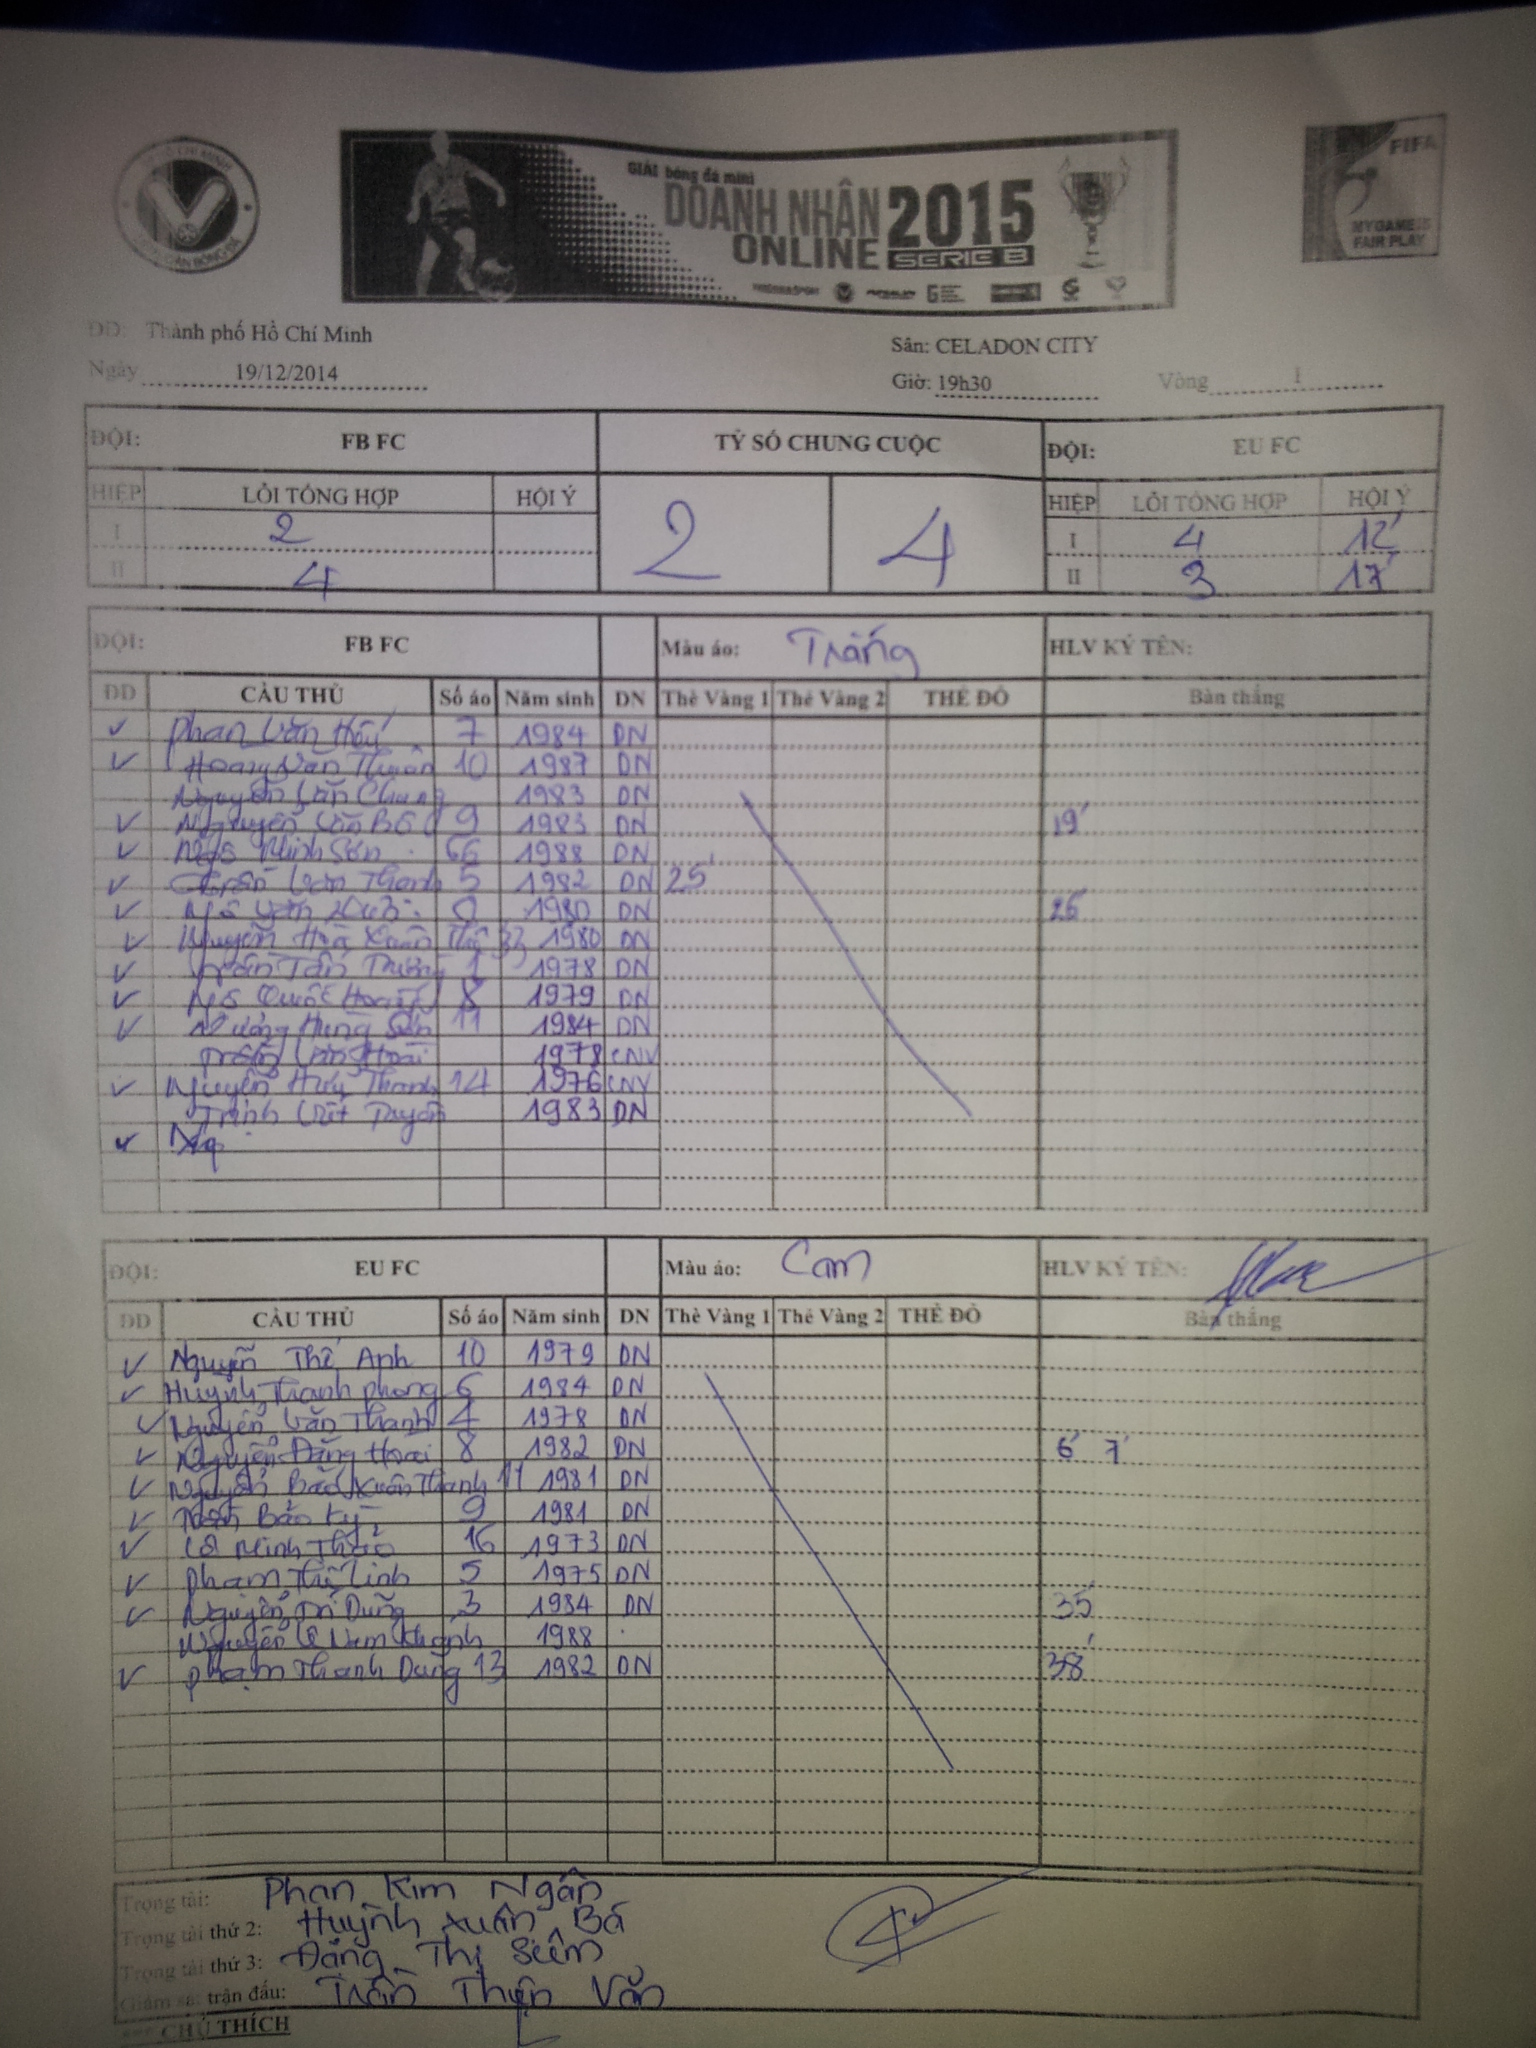 GIẢI bóng đá mini
DOANH NHÂN ONLINE 2015
SERIE B
FIFA
MY GAME IS
FAIR PLAY
ĐĐ: Thành phố Hồ Chí Minh
Sân: CELADON CITY
Ngày 19/12/2014
Giờ: 19h30 Vòng 1
ĐỘI: FB FC TỶ SỐ CHUNG CUỘC ĐỘI: EU FC
HIỆP LỖI TỔNG HỢP HỘI Ý 2 4 HIỆP LỖI TỔNG HỢP HỘI Ý
I 2 I 4 12'
II 4 II 3 17'
ĐỘI: FB FC Màu áo: Trắng HLV KÝ TÊN:
ĐD CẦU THỦ Số áo Năm sinh DN Thẻ Vàng 1 Thẻ Vàng 2 THẺ ĐỎ Bàn thắng
✓ Phan Văn 7 1984 DN
✓ Hoàng Văn 10 1987 DN
Nguyễn Văn Chung 1983 DN
✓ Nguyễn Văn 9 1983 DN 19'
✓ Ngô Minh Sơn 66 1988 DN
✓ Trần Văn Thanh 5 1982 DN 25'
✓ Văn 1980 DN 26'
✓ Nguyễn Xuân 33 1980 DN
✓ Trần Tấn 1 1978 DN
✓ Quốc 8 1979 DN
✓ Hùng 11 1984 DN
Văn Hoài 1978 CNV
✓ Nguyễn Hữu Thanh 14 1976 CNV
Trịnh Việt 1983 DN
✓
ĐỘI: EU FC Màu áo: Cam HLV KÝ TÊN:
ĐD CẦU THỦ Số áo Năm sinh DN Thẻ Vàng 1 Thẻ Vàng 2 THẺ ĐỎ Bàn thắng
✓ Nguyễn Thế Anh 10 1979 DN
✓ Huỳnh Thanh Phong 6 1984 DN
✓ Nguyễn Văn Thanh 4 1978 DN
✓ Nguyễn Đăng Hoài 8 1982 DN 6' 7'
✓ Nguyễn Bảo Xuân Thanh 11 1981 DN
✓ Trần Bảo Kỳ 9 1981 DN
✓ Lê Minh Thảo 16 1973 DN
✓ Phạm Thế Linh 5 1975 DN
✓ Nguyễn Trí Dũng 3 1984 DN 35'
Nguyễn Lê Nam Khánh 1988
✓ Phạm Thanh Dũng 13 1982 DN 38'
Trọng tài: Phan Kim Ngân
Trọng tài thứ 2: Huỳnh Xuân Bá
Trọng tài thứ 3: Đặng Thị
Giám sát trận đấu: Trần Văn
*** CHÚ THÍCH